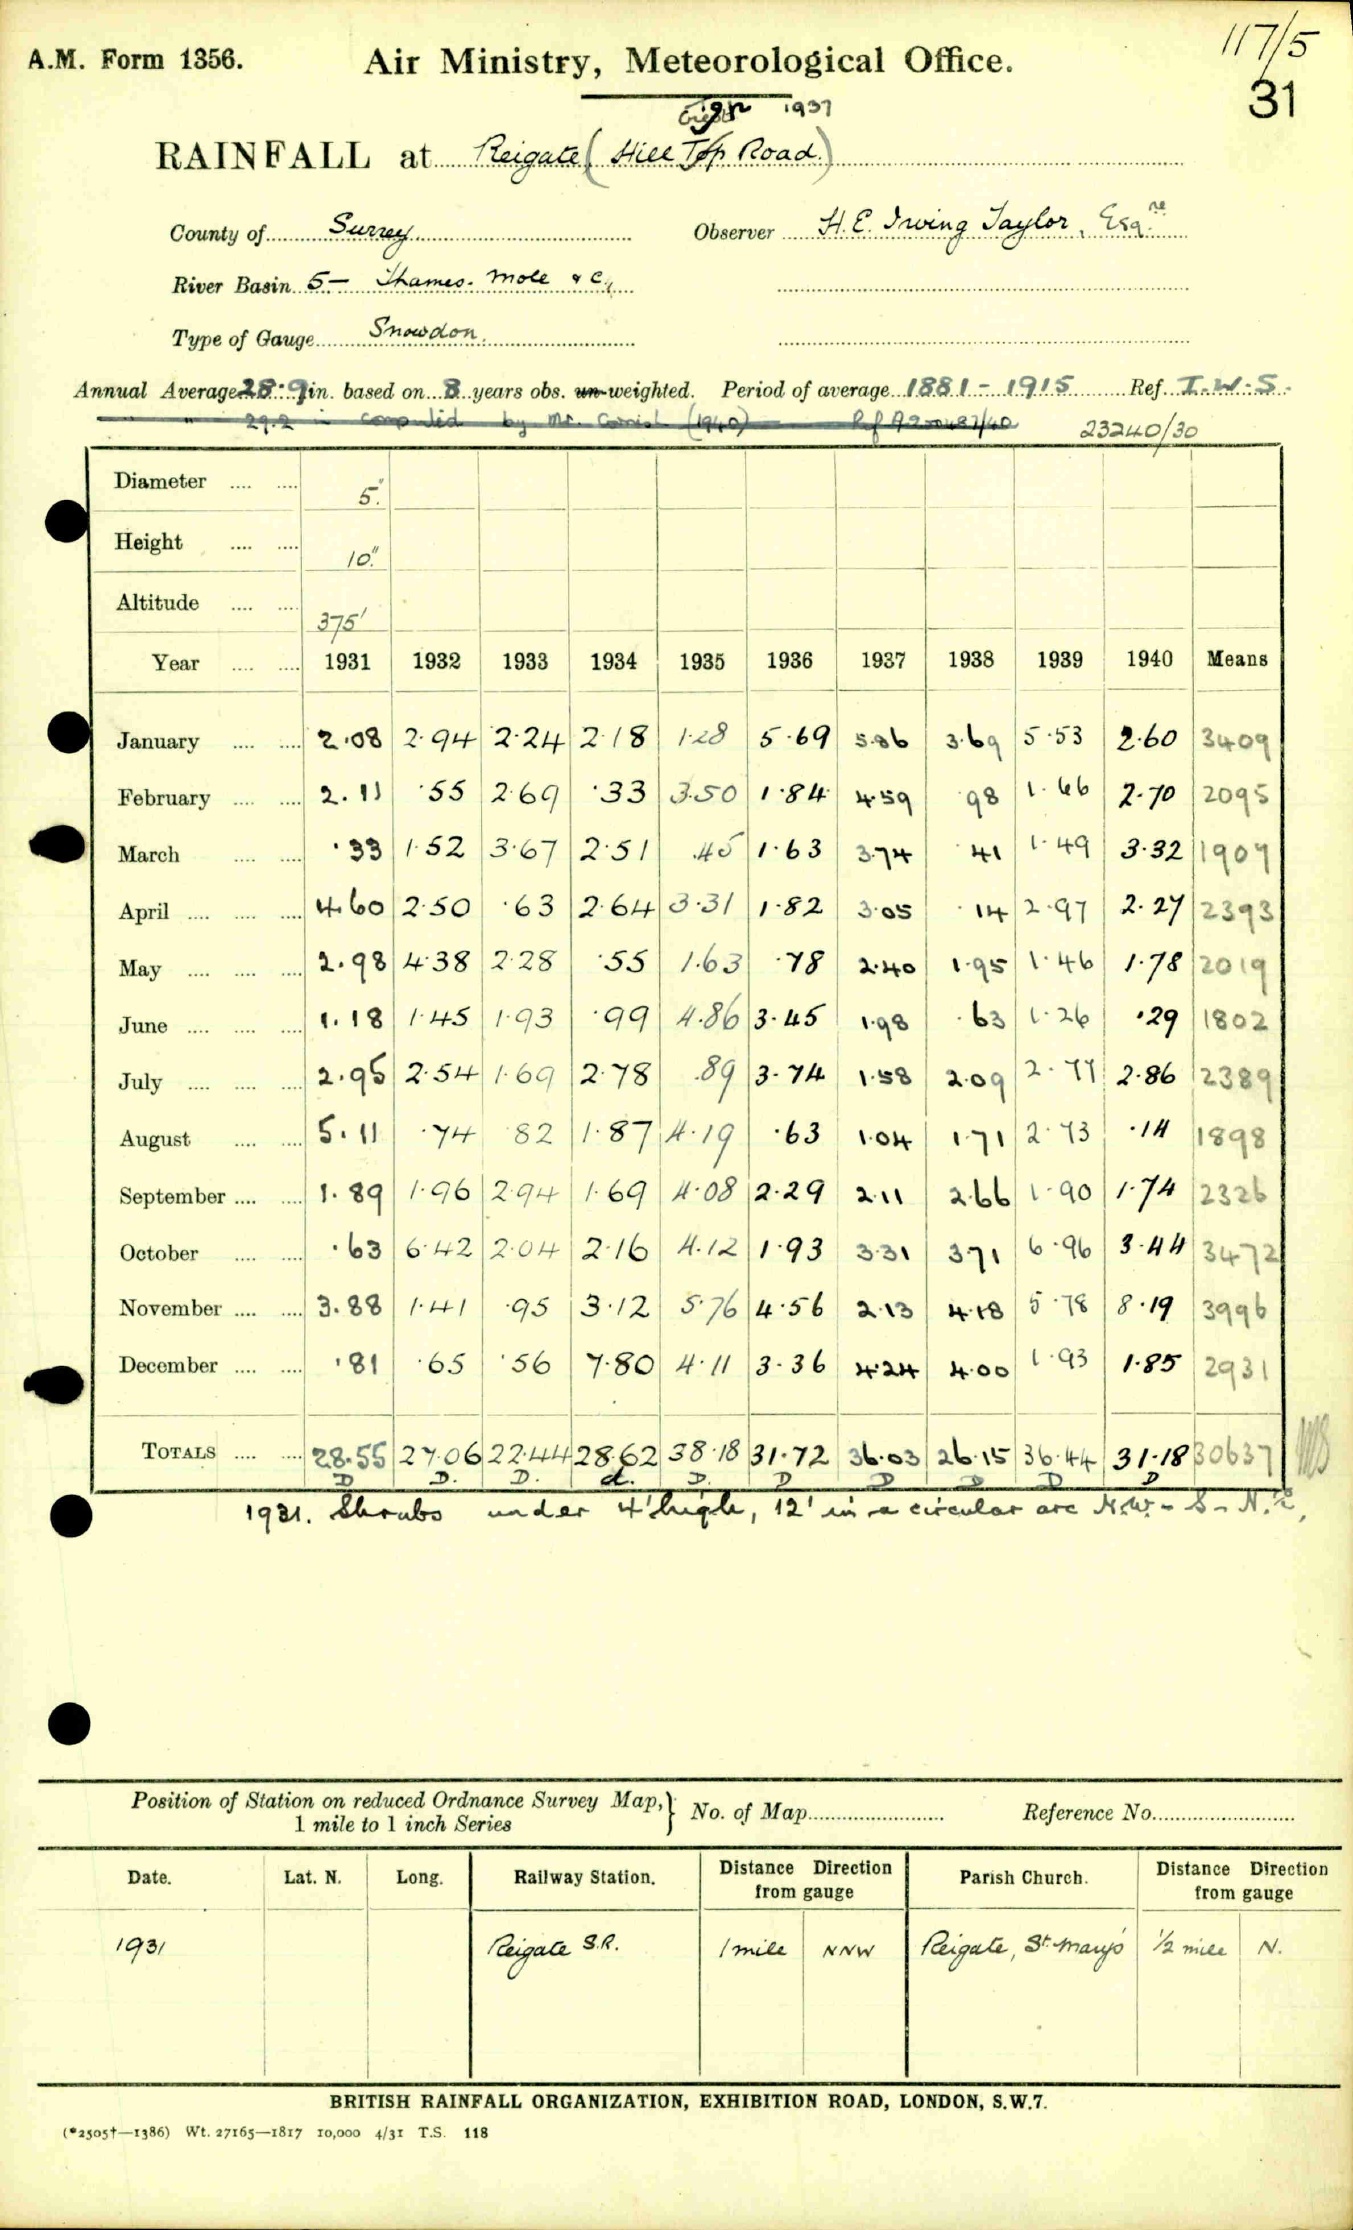 117/5
A.M. Form 1356.
Air Ministry, Meteorological Office.
31
1937
RAINFALL at Reigate (Hill Top Road.)
County of Surrey
Observer H. E. Irving Taylor, Esqre
River Basin 5— Thames. Mole & C.,
Type of Gauge Snowdon.
Annual Average 28.9 in. based on 8 years obs. un-weighted. Period of average 1881-1915 Ref. I.W.S.
" 29.2 in computed by Mr. Cornish (1940)
23240/30
Diameter .... .... 5"
Height .... .... 10"
Altitude .... .... 375'
Year .... .... 1931 1932 1933 1934 1935 1936 1937 1938 1939 1940 Means
January .... .... 2.08 2.94 2.24 2.18 1.28 5.69 5.86 3.69 5.53 2.60 3409
February .... .... 2.11 .55 2.69 .33 3.50 1.84 4.59 98 1.66 2.70 2095
March .... .... .33 1.52 3.67 2.51 .45 1.63 3.74 .41 1.49 3.32 1907
April .... .... .... 4.60 2.50 .63 2.64 3.31 1.82 3.05 .14 2.97 2.27 2393
May .... .... .... 2.98 4.38 2.28 .55 1.63 .78 2.40 1.95 1.46 1.78 2019
June .... .... .... 1.18 1.45 1.93 .99 4.86 3.45 1.98 .63 1.26 .29 1802
July .... .... .... 2.95 2.54 1.69 2.78 .89 3.74 1.58 2.09 2.77 2.86 2389
August .... .... 5.11 .74 82 1.87 4.19 .63 1.04 1.71 2.73 .14 1898
September .... .... 1.89 1.96 2.94 1.69 4.08 2.29 2.11 2.66 1.90 1.74 2326
October .... .... .63 6.42 2.04 2.16 4.12 1.93 3.31 3.71 6.96 3.44 3472
November .... .... 3.88 1.41 .95 3.12 5.76 4.56 2.13 4.18 5.78 8.19 3996
December .... .... .81 .65 .56 7.80 4.11 3.36 4.24 4.00 1.93 1.85 2931
TOTALS .... .... 28.55 27.06 22.44 28.62 38.18 31.72 36.03 26.15 36.44 31.18 30637
D D. D. d. D. D D D D D
1931. Shrubs under 4' high, 12' in a circular arc N.W. - S - N.E.,
Position of Station on reduced Ordnance Survey Map,} No. of Map Reference No.
1 mile to 1 inch Series
Date. Lat. N. Long. Railway Station. Distance Direction from gauge Parish Church. Distance Direction from gauge
1931 Reigate S.R. 1 mile NNW Reigate, St. Mary's 1/2 mile N.
BRITISH RAINFALL ORGANIZATION, EXHIBITION ROAD, LONDON, S.W.7.
(*2505†—1386) Wt. 27165—1817 10,000 4/31 T.S. 118